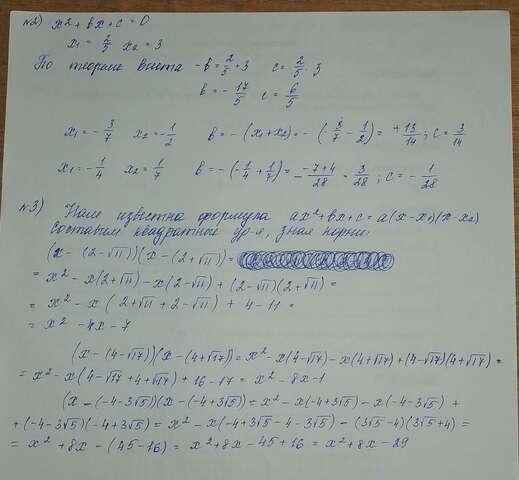 №2) x² + bx + c = 0
x₁ = 2/5 x₂ = 3
По теореме Виета -b = 2/5 + 3 c = 2/5 · 3
b = - 17/5 c = 6/5
x₁ = - 3/7 x₂ = - 1/2 b = - (x₁ + x₂) = - (- 3/7 - 1/2) = + 13/14 ; c = 3/14
x₁ = - 1/4 x₂ = 1/7 b = - (- 1/4 + 1/7) = - -7+4/28 = 3/28 ; c = - 1/28
№3) Нам известна формула ax² + bx + c = a(x - x₁)(x - x₂)
Составим квадратные ур-я, зная корни:
(x - (2 - √11))(x - (2 + √11)) =
= x² - x(2 + √11) - x(2 - √11) + (2 - √11)(2 + √11) =
= x² - x (2 + √11 + 2 - √11) + 4 - 11 =
= x² - 4x - 7
(x - (4 - √17))(x - (4 + √17)) = x² - x(4 - √17) - x(4 + √17) + (4 - √17)(4 + √17) =
= x² - x(4 - √17 + 4 + √17) + 16 - 17 = x² - 8x - 1
(x - (-4 - 3√5))(x - (-4 + 3√5)) = x² - x(-4 + 3√5) - x(-4 - 3√5) +
+ (-4 - 3√5)(-4 + 3√5) = x² - x(-4 + 3√5 - 4 - 3√5) - (3√5 - 4)(3√5 + 4) =
= x² + 8x - (45 - 16) = x² + 8x - 45 + 16 = x² + 8x - 29